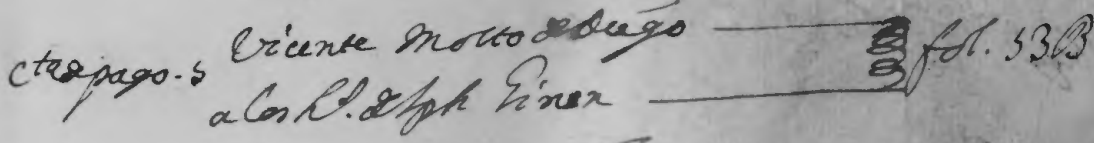 Ctas pago. s Vicente Molto de Diego
a los h.s de Jph Giner
fol. 53B